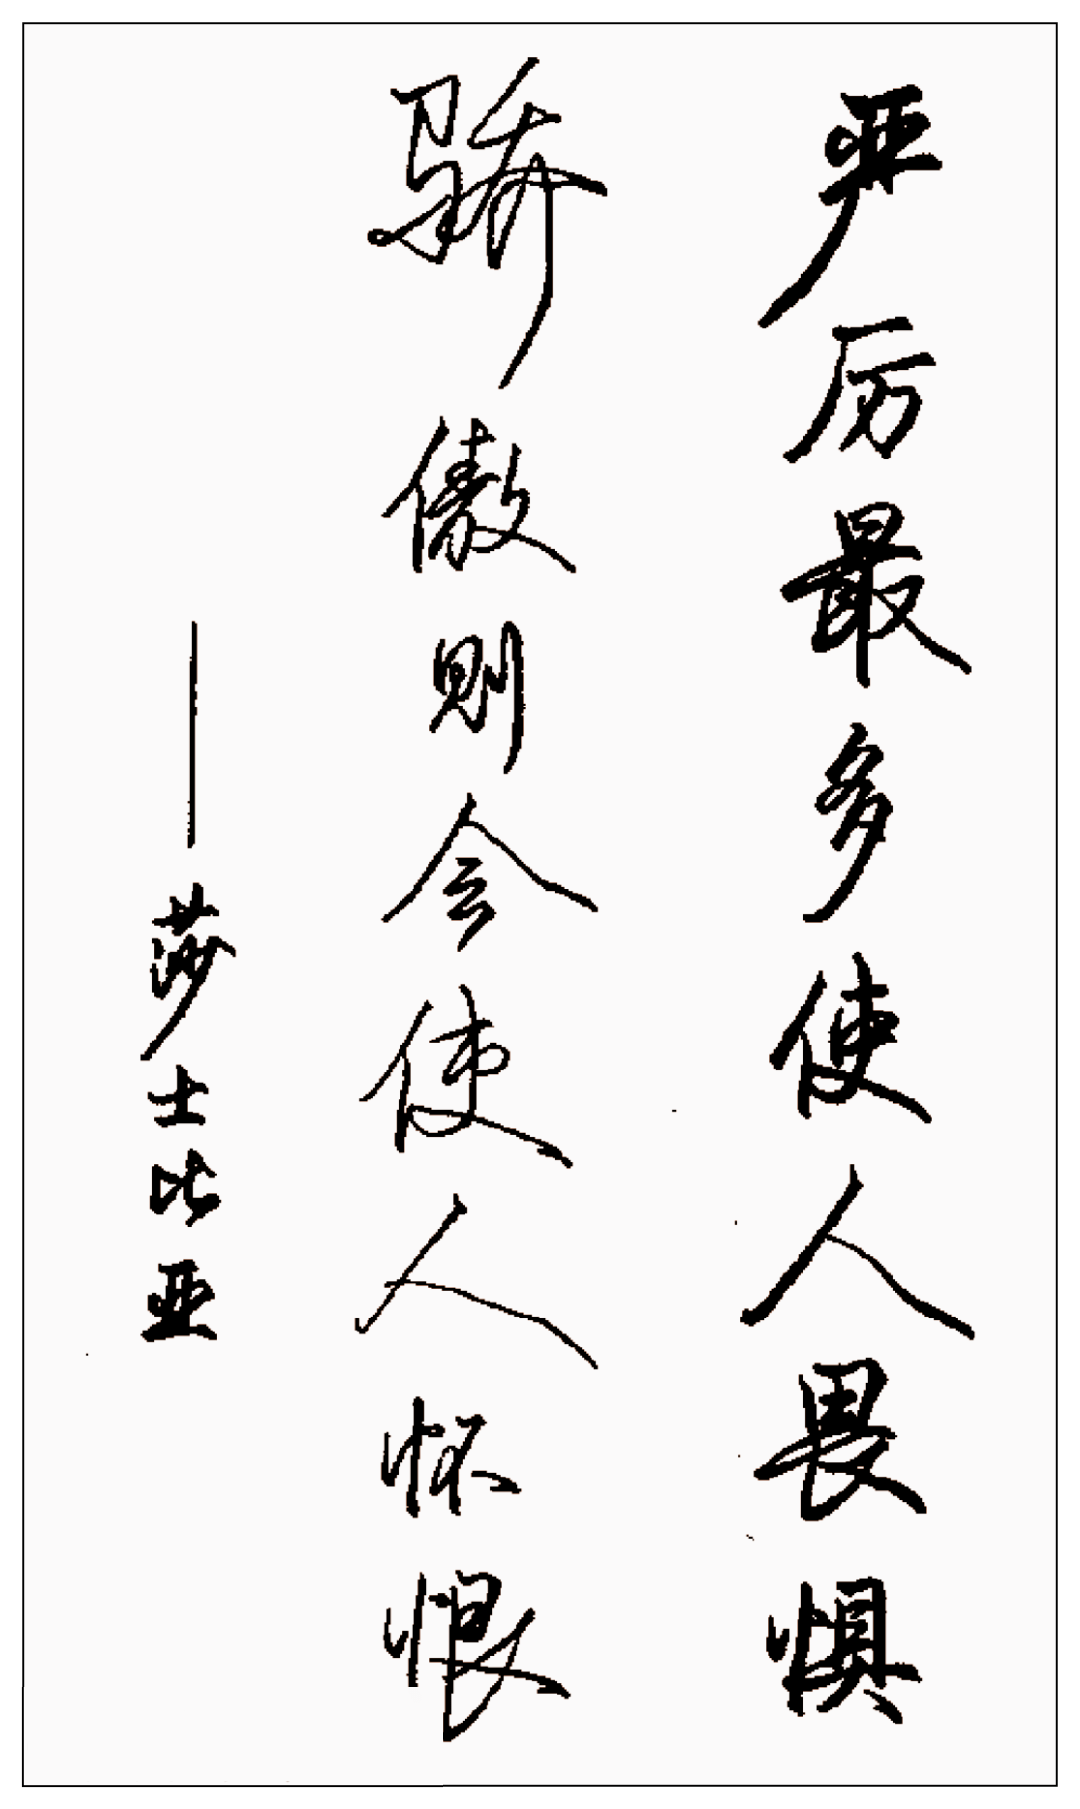 严厉最多使人畏惧
骄傲则会使人怀恨
——莎士比亚